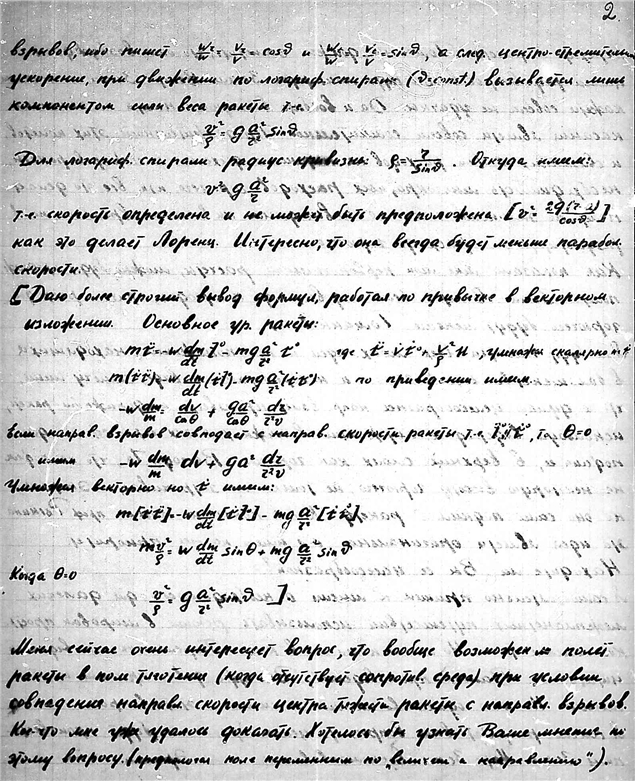 2.
взрывов, ибо пишет w_z/w = v_z/v = cosϑ и = sinϑ, а след. центро-стремительн
ускорение, при движении по логариф. спирали (ϑ=const) вызывается лишь
компонентом силы веса ракеты т.е.
v²/ρ = g a²/r² sinϑ
Для логариф. спирали радиус кривизны: ρ = r/sinϑ. Откуда имеем:
v² = g a²/r
т.е. скорость определена и не может быть предположена
как это делает Лоренц. Интересно, что она всегда будет меньше парабол.
скорости.
[Даю более строгий вывод формул, работал по привычке в векторном
изложении. Основное ур. ракеты:
где , умножая скалярно на
и по приведении имеем
-w dm/m = dv/cosθ + ga²/cosθ dr/r²v
Если направ. взрывов совпадает с направ. скорости ракеты т.е. то θ=0
имеем -w dm/m = dv + ga² dr/r²v
Умножая векторно на имеем:
mv²/ρ = w dm/dt sinθ + mg a²/r² sinϑ
Когда θ=0
v²/ρ = g a²/r² sinϑ ].
Меня сейчас очень интересует вопрос, что вообще возможен ли полет
ракеты в поле тяготения (когда отсутствует сопротив. среда) при условии
совпадения направл. скорости центра тяжести ракеты с направл. взрывов.
Кое что мне уже удалось доказать. Хотелось бы узнать Ваше мнение по
этому вопросу. (предполагая поле переменным по „величине и направлению").